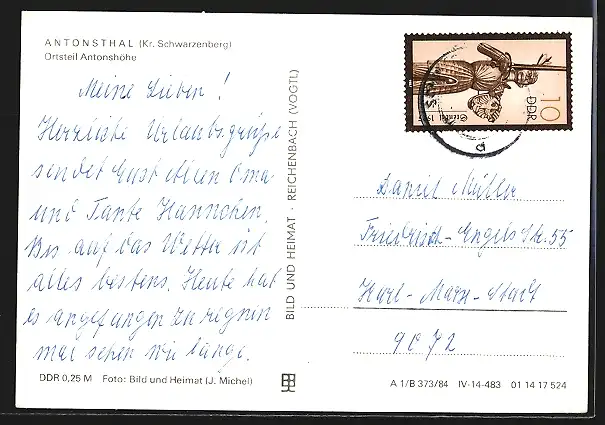 ANTONSTHAL (Kr. Schwarzenberg)
Ortsteil Antonshöhe
Meine Lieben!
Herzliche Urlaubsgrüße
sendet Euch allen Oma
und Tante Hannchen.
Bis auf das Wetter ist
alles bestens. Heute hat
es angefangen zu regnen
mal sehen wie lange.
DDR 0,25 M Foto: Bild und Heimat (J. Michel)
BILD UND HEIMAT · REICHENBACH (VOGTL)
10
DDR
Daniel Müller
Friedrich-Engels Str. 55
Karl-Marx-Stadt
9072
A 1/B 373/84 IV-14-483 01 14 17 524